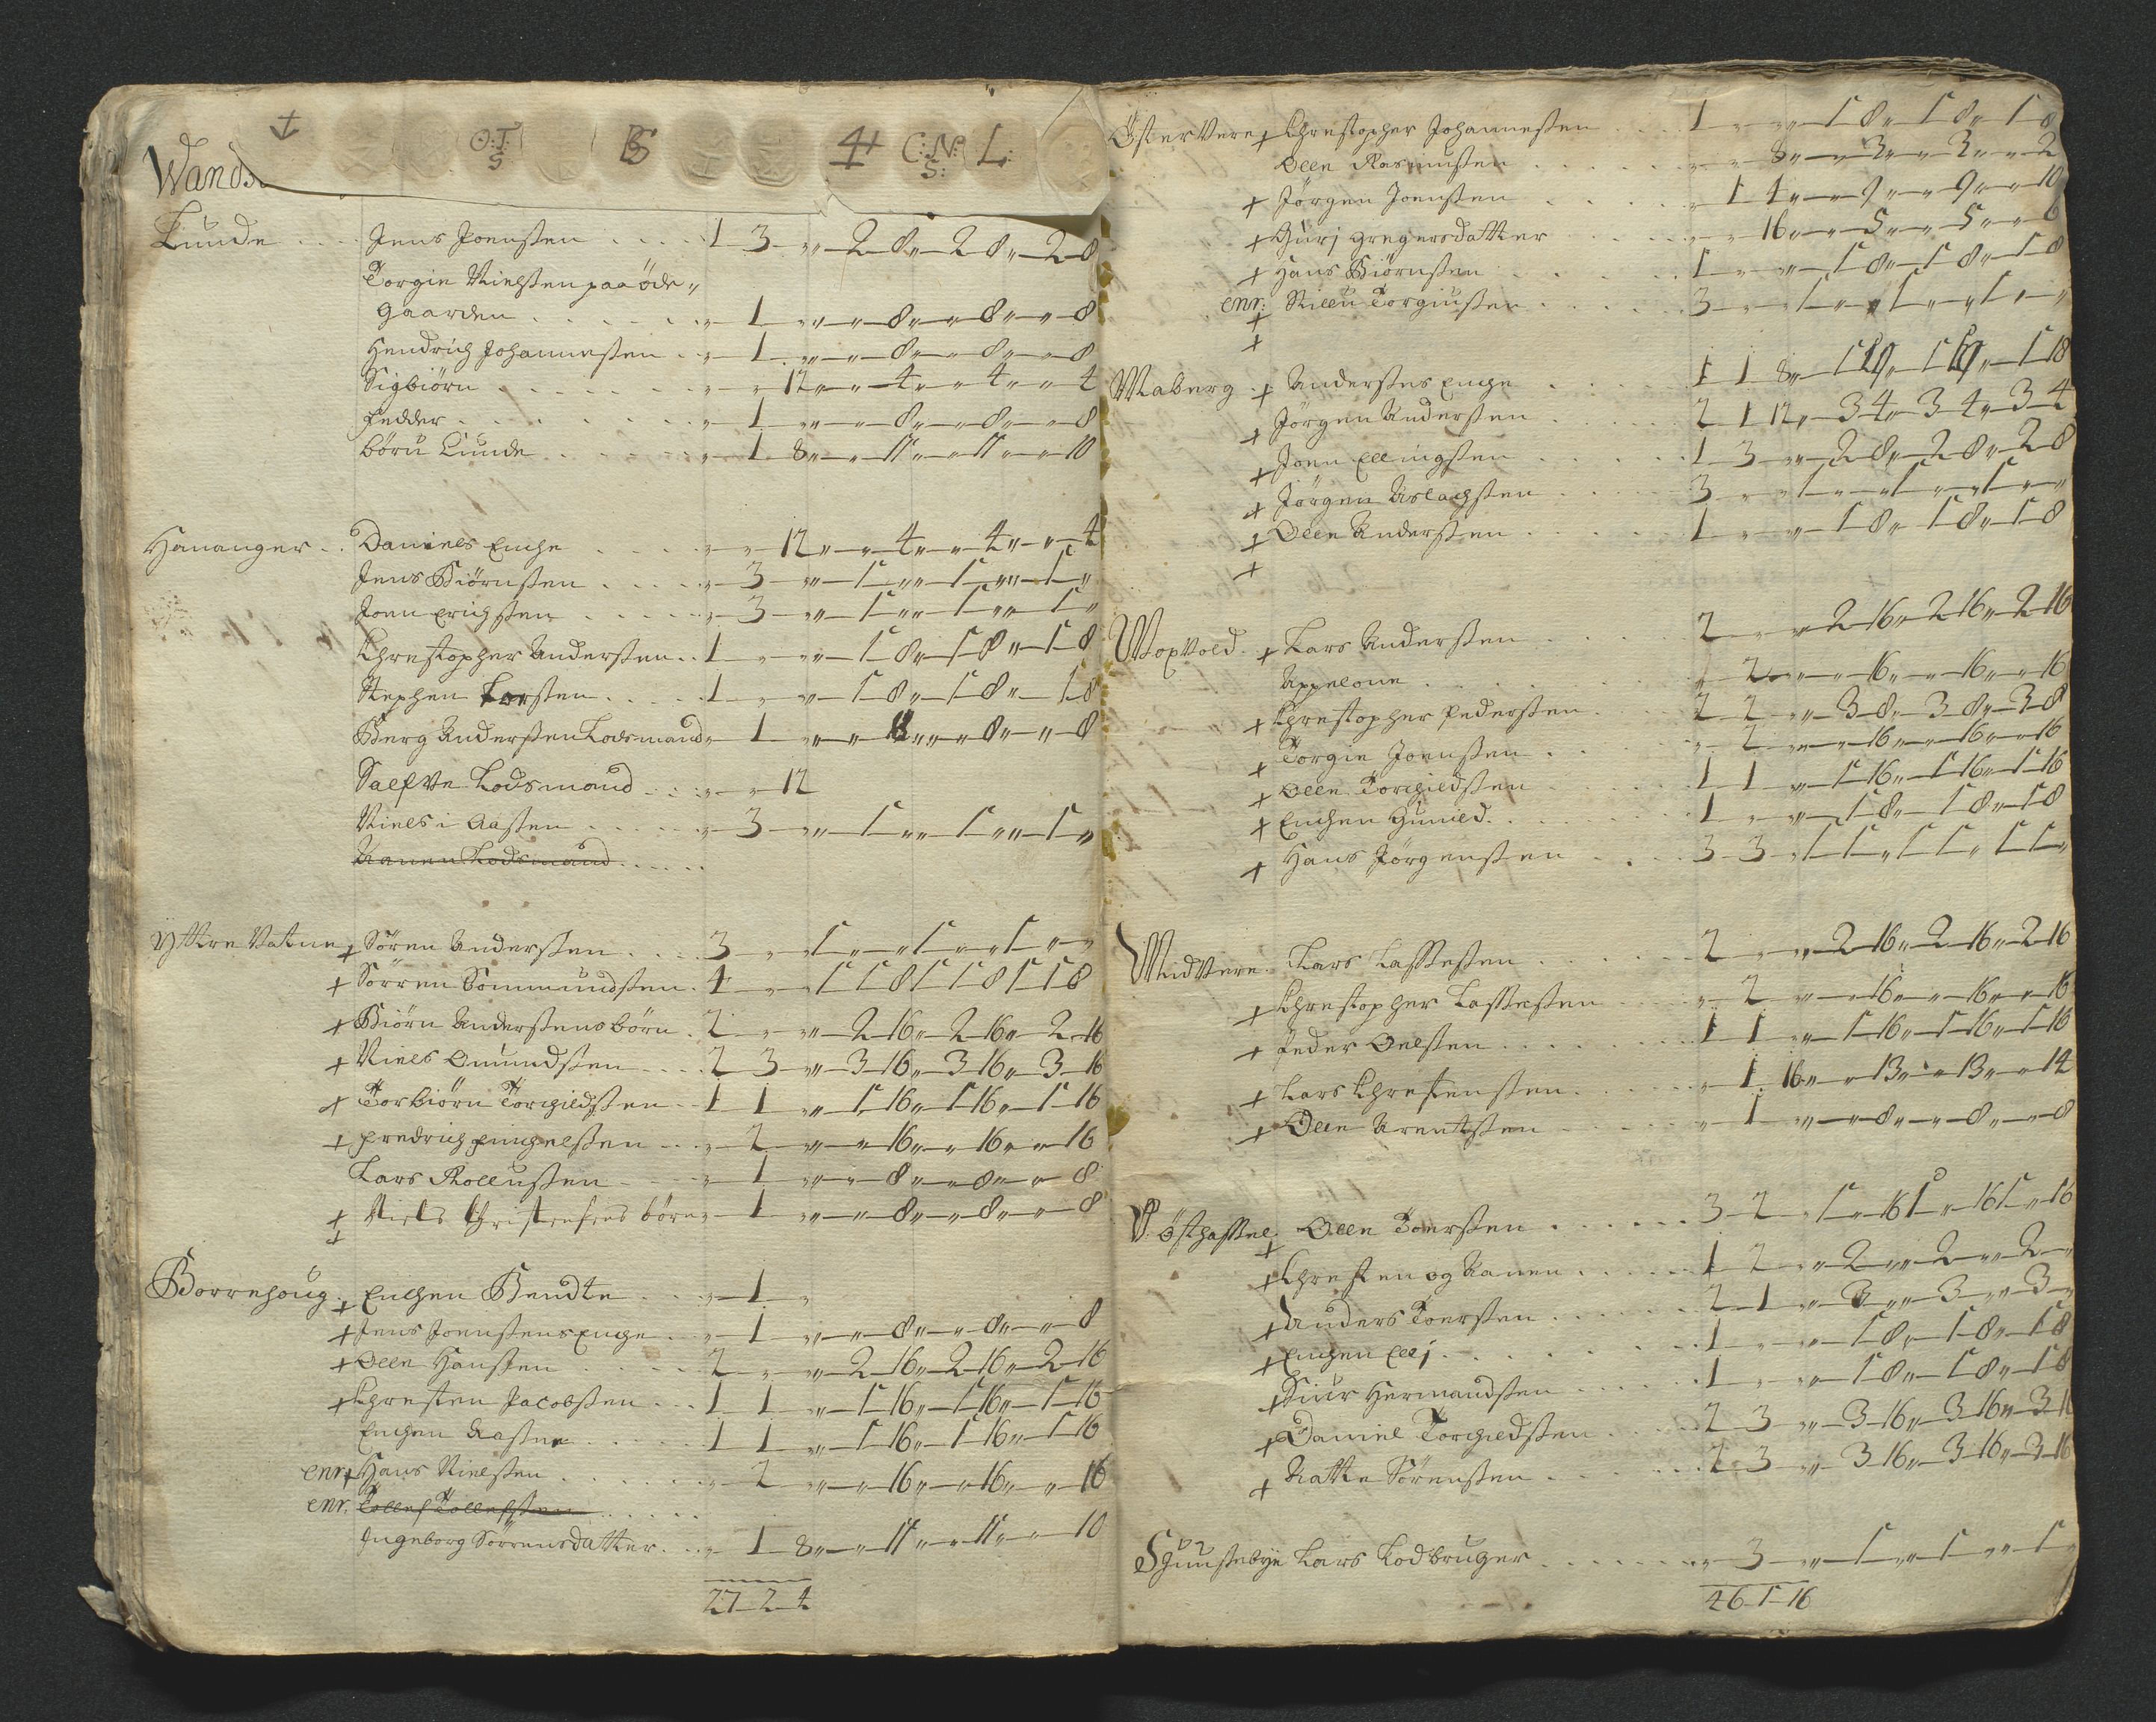 O:T:
S
B
4
C:N: L:
S:
Lunde Jens Joensen 1 3 „ 2 8 „ 2 8 „ 2 8
Torgie Nielsen paa öde„
gaarden „ 1 „ „ 8 „ „ 8 „ „ 8
Hendrich Johannesen „ 1 „ „ 8 „ „ 8 „ „ 8
Sigbiörn „ „ 12 „ „ 4 „ „ 4 „ „ 4
Pedder „ 1 „ „ 8 „ „ 8 „ „ 8
börn Lunde „ 1 8 „ „ 11 „ „ 11 „ „ 10
Hananger Daniels Enche „ „ 12 „ „ 4 „ „ 4 „ „ 4
Jens Biörnsen „ 3 „ „ 1 „ „ 1 „ „ 1 „
Joen Erichsen „ 3 „ „ 1 „ „ 1 „ „ 1 „
Christopher Andersen 1 „ „ „ 1 8 „ 1 8 „ 1 8
Stephen 1 „ „ „ 1 8 „ 1 8 „ 1 8
Berg Andersen Lodsmand „ 1 „ „ 8 „ „ 8 „ „ 8
Salfve Lodsmand „ „ 12
Niels i Aasen „ 3 „ „ 1 „ „ 1 „ „ 1 „
Aanen Lodsmand
Yttre Vatne + Sören Andersen 3 „ „ 1 „ „ 1 „ „ 1 „ „
+ Sörren Sommundsen 4 „ „ 1 1 8 1 1 8 1 1 8
+ Biörn Andersens börn 2 „ „ „ 2 16 „ 2 16 „ 2 16
+ Niels Omundsen 2 3 „ „ 3 16 „ 3 16 „ 3 16
+ Torbiörn Torgildsen 1 1 „ „ 1 16 „ 1 16 „ 1 16
+ Fredrich Engelsen „ 2 „ „ „ 16 „ „ 16 „ „ 16
Lars Rollusen „ 1 „ „ „ 8 „ „ 8 „ „ 8
+ Niels börn „ 1 „ „ „ 8 „ „ 8 „ „ 8
+
Borrehoug + Enchen Bendte „ 1 „
+ Jens Joensens Enche „ 1 „ „ „ 8 „ „ 8 „ „ 8
+ Olle Hansen 2 „ „ „ 2 16 „ 2 16 „ 2 16
+ Christen Jacobsen 1 1 „ „ 1 16 „ 1 16 „ 1 16
Enchen Aasne 1 1 „ „ 1 16 „ 1 16 „ 1 16
enr + Hans Nielsen „ 2 „ „ „ 16 „ „ 16 „ „ 16
enr: Tollef Tollefsen
Ingeborg Sörrensdatter „ 1 8 „ „ 11 „ „ 11 „ „ 10
27 2 4
ÖsterVere + Christopher Johannesen 1 „ „ „ 1 8 „ 1 8 „ 1 8
Olle Rasmusen „ „ 8 „ „ 3 „ „ 3 „ „ 2
+ Jörgen Joensen „ 1 4 „ „ 9 „ „ 9 „ „ 10
+ Gurj gregersdatter „ „ 16 „ „ 5 „ „ 5 „ „ 6
+ Hans Biörnsen 1 „ „ „ 1 8 „ 1 8 „ 1 8
enr: Torgiusen 3 „ „ 1 „ „ 1 „ „ 1 „ „
+
+
Maberg + Andersens Enche 1 1 8 „ 1 19 „ 1 19 „ 1 18
+ Jörgen Andersen 2 1 12 „ 3 4 „ 3 4 „ 3 4
+ Joen Ellingsen 1 3 „ „ 2 8 „ 2 8 „ 2 8
+ Jörgen Aslachsen 3 „ „ 1 „ „ 1 „ „ 1 „ „
+ Olle Andersen 1 „ „ „ 1 8 „ 1 8 „ 1 8
+
+ Lars Andersen 2 „ „ „ 2 16 „ 2 16 „ 2 16
Appelone „ 2 „ „ „ 16 „ „ 16 „ „ 16
+ Christopher Pedersen 2 2 „ „ 3 8 „ 3 8 „ 3 8
+ Torgie Joensen „ 2 „ „ „ 16 „ „ 16 „ „ 16
+ Olle Torgildsen 1 1 „ „ 1 16 „ 1 16 „ 1 16
+ Enchen Gunild 1 „ „ „ 1 8 „ 1 8 „ 1 8
+ Hans Jörgensen 3 3 „ 1 1 „ 1 1 „ 1 1 „
MidVere Lars Lassesen 2 „ „ „ 2 16 „ 2 16 „ 2 16
+ Christopher Lassesen „ 2 „ „ „ 16 „ „ 16 „ „ 16
+ Peder Oelsen 1 1 „ „ 1 16 „ 1 16 „ 1 16
+ Lars Christensen „ 1 16 „ „ 13 „ „ 13 „ „ 14
+ Olle Arentsen „ 1 „ „ „ 8 „ „ 8 „ „ 8
Östhassel Olle Toersen 3 2 „ 1 „ 16 1 „ 16 1 „ 16
+
+ Christen og Aanen 1 2 „ „ 2 „ „ 2 „ „ 2 „
+ Anders Toersen 2 1 „ „ 3 „ „ 3 „ „ 3 „
+ Enchen Elj 1 „ „ „ 1 8 „ 1 8 „ 1 8
+ Hermandsen 1 „ „ „ 1 8 „ 1 8 „ 1 8
+ Daniel Torgildsen 2 3 „ „ 3 16 „ 3 16 „ 3 16
+ Aatte Sörensen 2 3 „ „ 3 16 „ 3 16 „ 3 16
Lars Lodbruger „ 3 „ „ 1 „ „ 1 „ „ 1 „
46 1 16